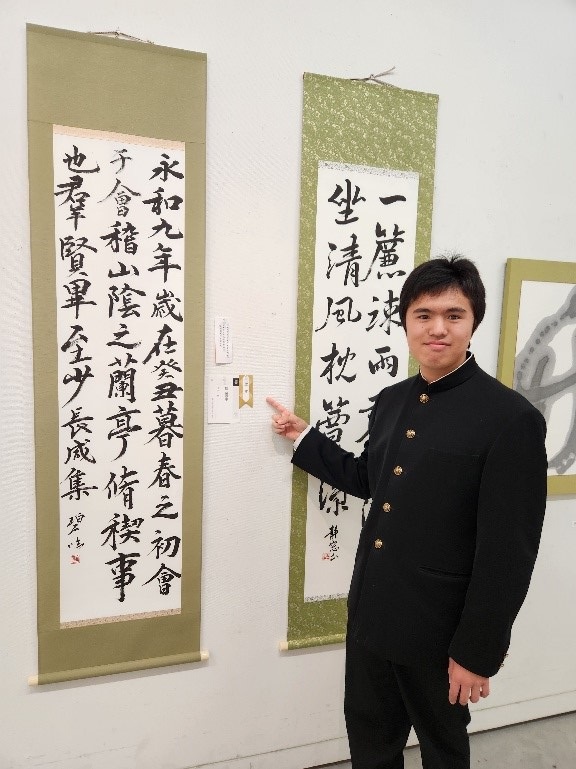 永和九年歳在癸丑暮春之初會
于會稽山陰之蘭亭脩稧事
也羣賢畢至少長咸集
碧
一簾疎雨
坐清風枕簟涼